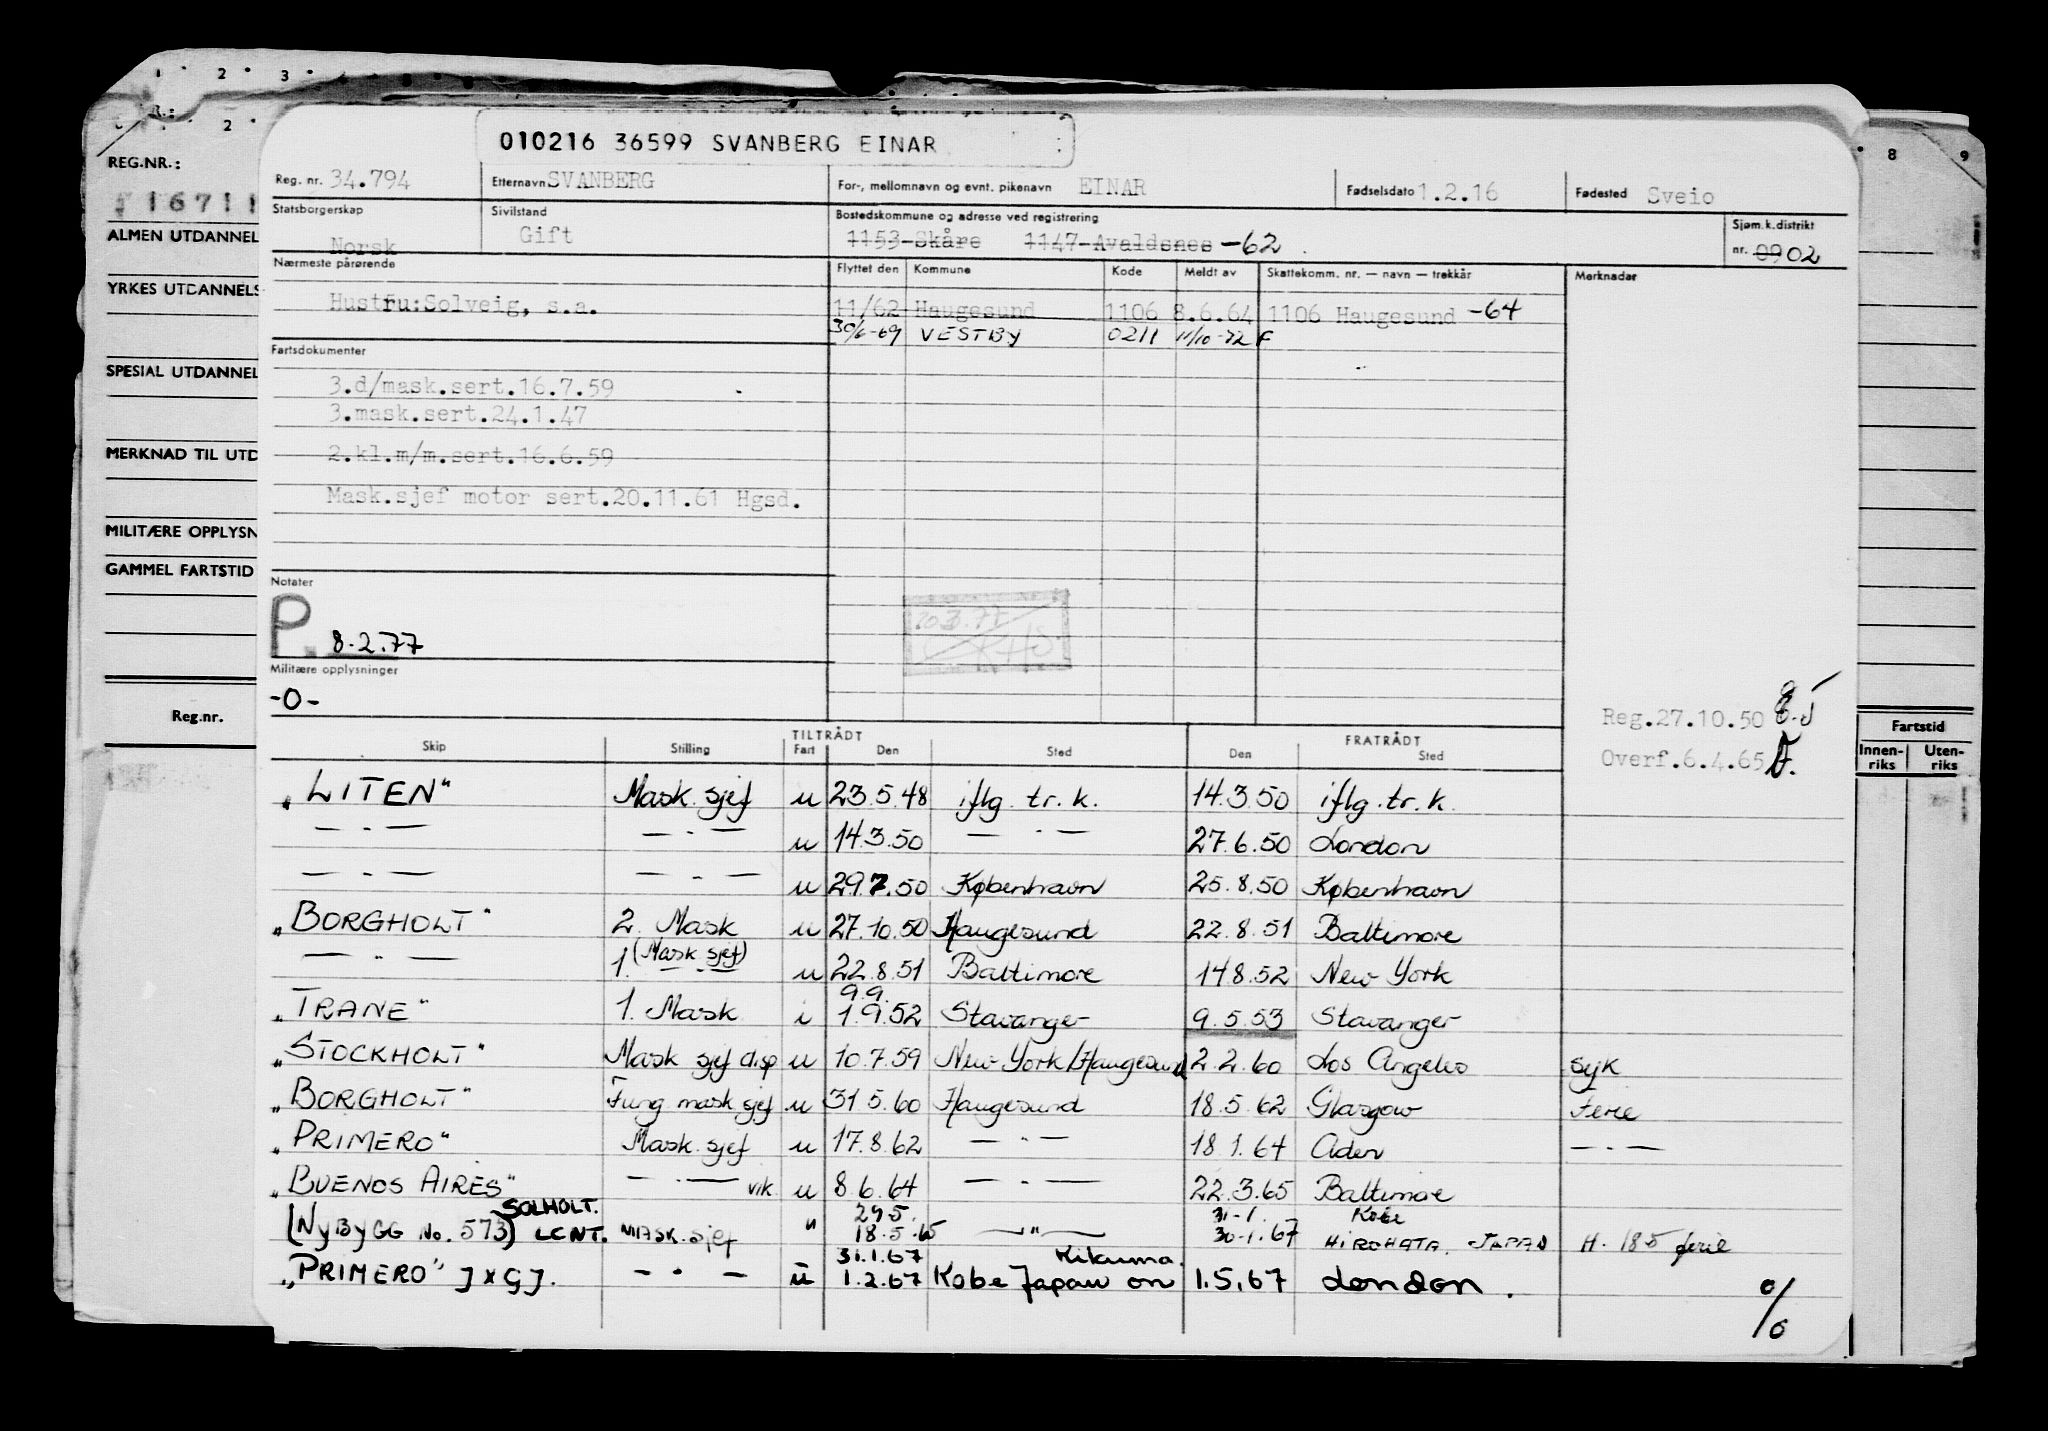 1 · 2 · 3 ·
2
8 9
010216 36599 SVANBERG EINAR
REG.NR.:
16711
ALMEN UTDANNEL
YRKES UTDANNELS
SPECIAL UTDANNEL
MERKNAD TIL UTD
MILITÆRE OPPLYSN
GAMMEL FARTSTID
Reg.nr.
Fartstid
Innen-riks Uten-riks
Reg. nr. 34.794 Etternavn SVANBERG For-, mellomnavn og evnt. pikenavn EINAR Fødselsdato 1.2.16 Fødested Sveio
Statsborgerskap Sivilstand Bostedskommune og adresse ved registrering Sjøm.k.distrikt
Norsk Gift 1153-Skåre 1147-Avaldsnes -62 nr. 0902
Nærmeste pårørende Flyttet den Kommune Kode Meldt av Skattekomm. nr. — navn — trekkår Merknader
Hustru:Solveig, s.a. 11/62 Haugesund 1106 8.6.64 1106 Haugesund -64
30/6-69 VESTBY 0211 11/10-72 F
Fartsdokumenter
3.d/mask.sert.16.7.59
3.mask.sert.24.1.47
2.kl.m/m.sert.16.6.59
Mask.sjef motor sert.20.11.61 Hgsd.
Notater
P. 8.2.77
Militære opplysninger
-0-
Reg.27.10.50
Overf.6.4.65
TILTRÅDT FRATRÅDT
Skip Stilling Fart Den Sted Den Sted
"LITEN" Mask. sjef u 23.5.48 iflg. tr. k. 14.3.50 iflg. tr. k.
— · — — · — u 14.3.50 — · — 27.6.50 London
— · — — · — u 29.7.50 København 25.8.50 København
"BORGHOLT" 2. Mask u 27.10.50 Haugesund 22.8.51 Baltimore
— " — 1. (Mask. sjef) — " — u 22.8.51 Baltimore 14.8.52 New York
9.9.
"TRANE" 1. Mask i 1.9.52 Stavanger 9.5.53 Stavanger
"STOCKHOLT" Mask sjef disp u 10.7.59 New York/Haugesund 2.2.60 Los Angeles syk
"BORGHOLT" Fung mask sjef u 31.5.60 Haugesund 18.5.62 Glasgow Ferie
"PRIMERO" Mask. sjef u 17.8.62 — " — 18.1.64 Aden — · —
"BUENOS AIRES" — · — vik u 8.6.64 — · — 22.3.65 Baltimore
SOLHOLT. 29.5. 31-1. Kobe
(NYBYGG No. 573) LCNT. MASK. sjef " 18.5.65 — " — 30-1.67 HIROHATA, JAPAN H. 185 ferie
31.1.67 Kikuma.
"PRIMERO" JXGJ. — · — u 1.2.67 Kobe Japan on 1.5.67 London.
%